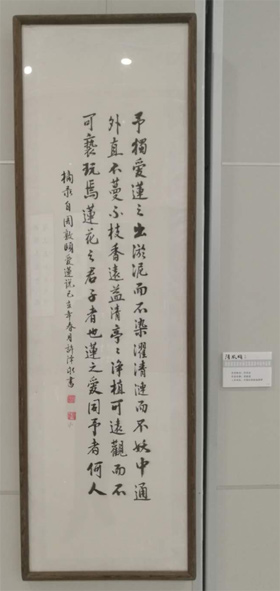 予獨愛蓮之出淤泥而不染濯清漣而不妖中通
外直不蔓不枝香遠益清亭〻淨植可遠觀而不
可褻玩焉蓮花之君子者也蓮之愛同予者何人
摘录自周敦頤愛蓮説己亥年春月許書